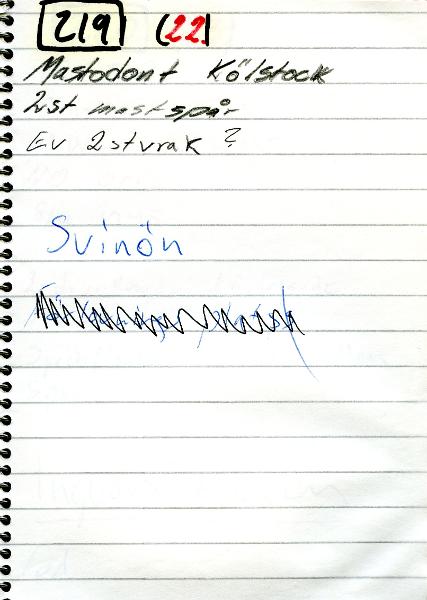 219 (22)
Mastodont Kölstock
2st mastspår
Ev 2st vrak ?
Svinön